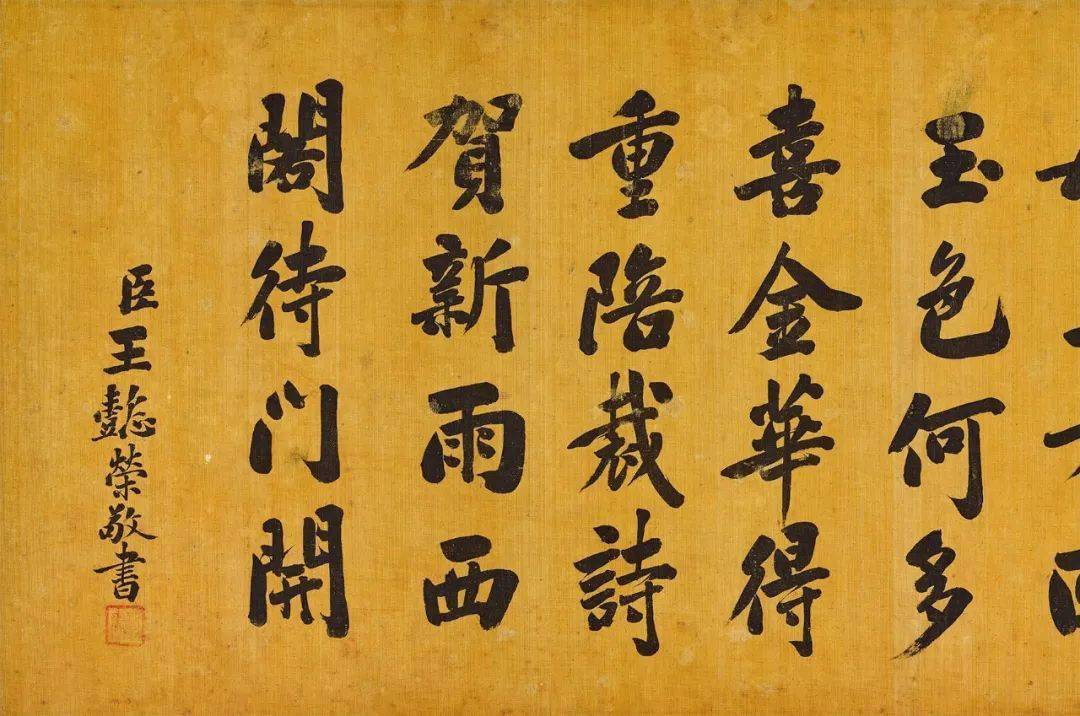 玉色何多
喜金華得
重陪裁詩
賀新雨西
閣待門開
臣王懿榮敬書